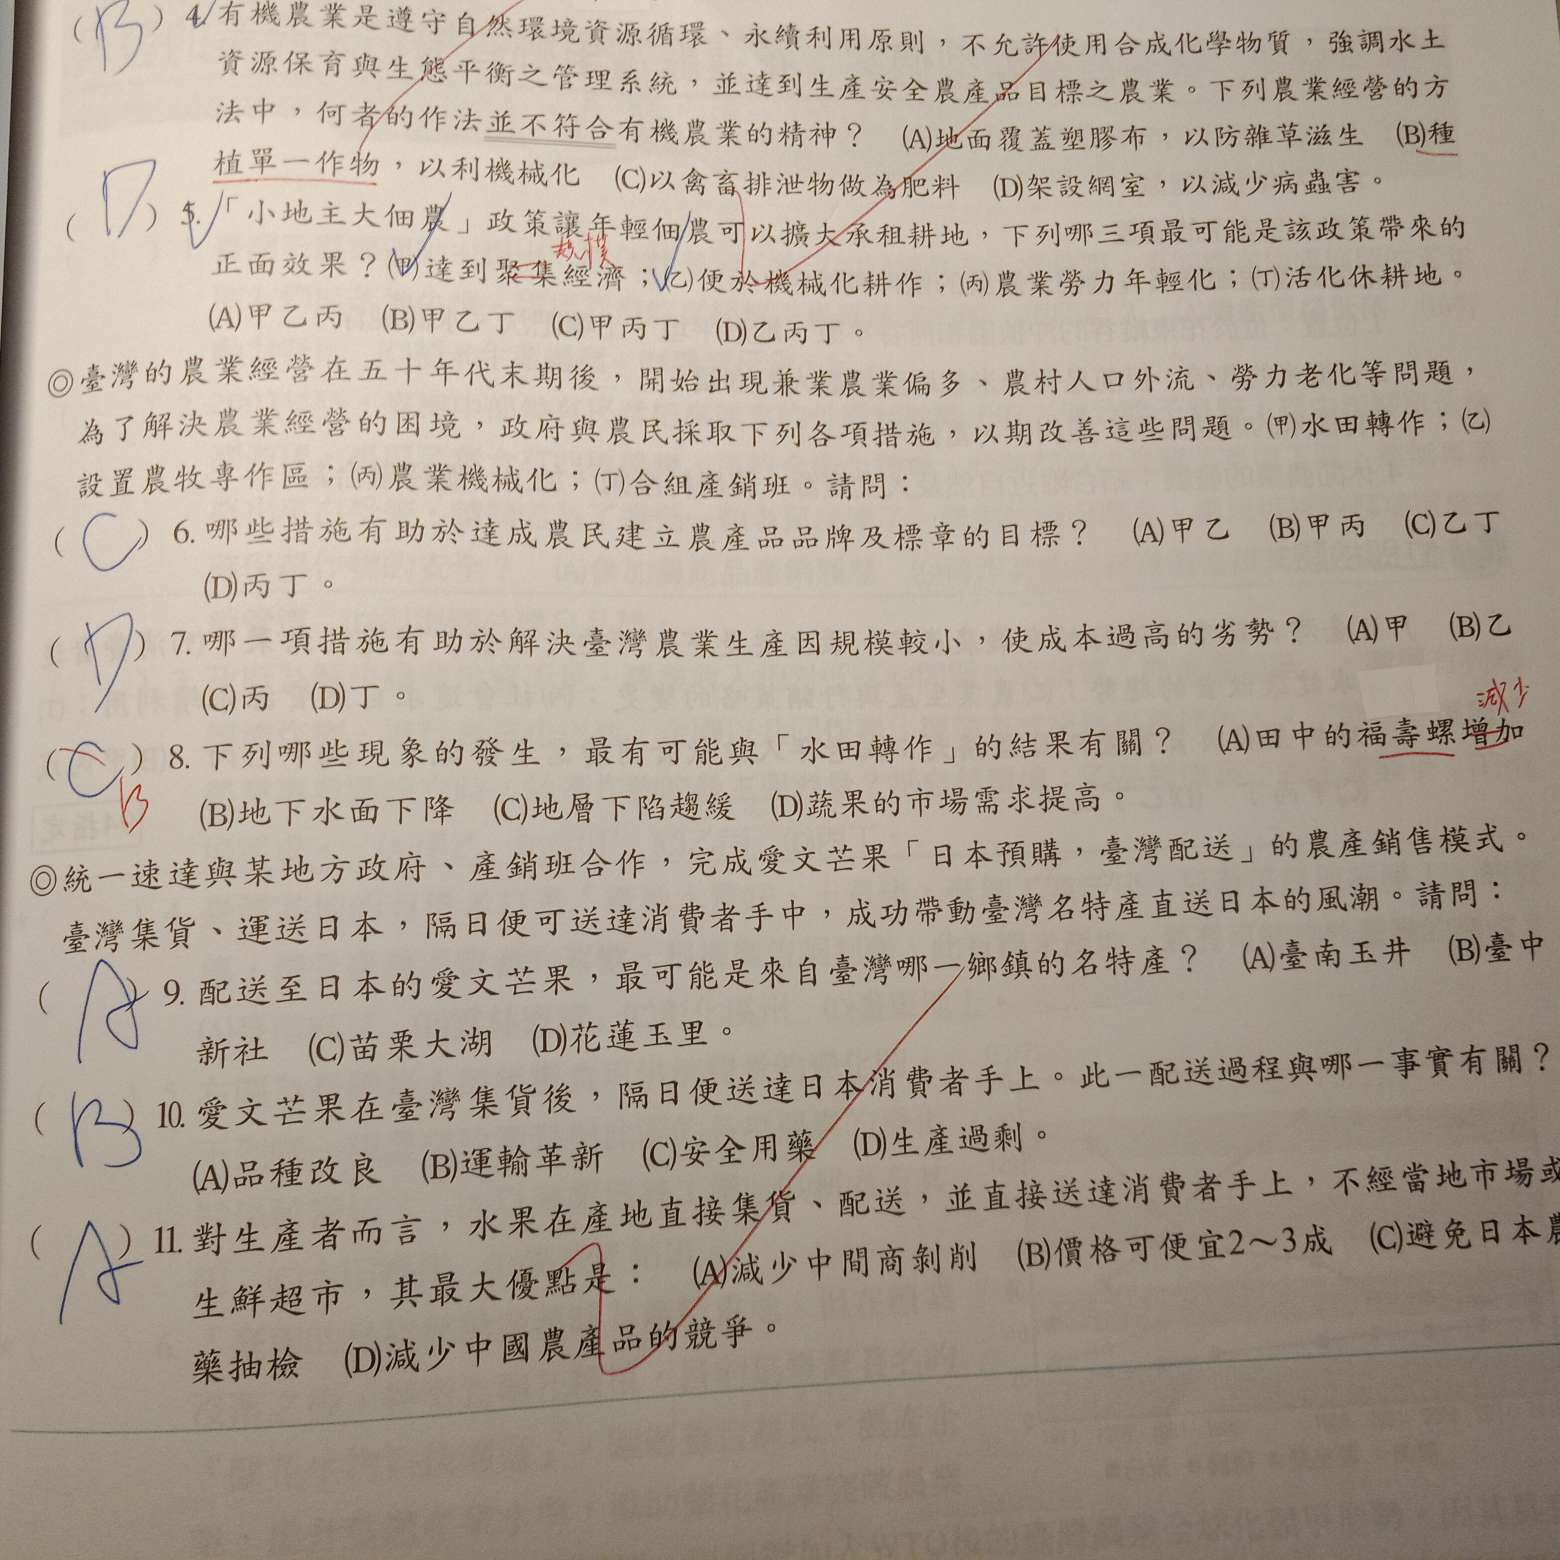 (B) 4. 有機農業是遵守自然環境資源循環、永續利用原則，不允許使用合成化學物質，強調水土
資源保育與生態平衡之管理系統，並達到生產安全農產品目標之農業。下列農業經營的方
法中，何者的作法並不符合有機農業的精神？ (A)地面覆蓋塑膠布，以防雜草滋生 (B)種
植單一作物，以利機械化 (C)以禽畜排泄物做為肥料 (D)架設網室，以減少病蟲害。
(D) 5. 「小地主大佃農」政策讓年輕佃農可以擴大承租耕地，下列哪三項最可能是該政策帶來的
規模
正面效果？(甲)達到聚集經濟；(乙)便於機械化耕作；(丙)農業勞力年輕化；(丁)活化休耕地。
(A)甲乙丙 (B)甲乙丁 (C)甲丙丁 (D)乙丙丁。
◎臺灣的農業經營在五十年代末期後，開始出現兼業農業偏多、農村人口外流、勞力老化等問題，
為了解決農業經營的困境，政府與農民採取下列各項措施，以期改善這些問題。(甲)水田轉作；(乙)
設置農牧專作區；(丙)農業機械化；(丁)合組產銷班。請問：
(C) 6. 哪些措施有助於達成農民建立農產品品牌及標章的目標？ (A)甲乙 (B)甲丙 (C)乙丁
(D)丙丁。
(D) 7. 哪一項措施有助於解決臺灣農業生產因規模較小，使成本過高的劣勢？ (A)甲 (B)乙
(C)丙 (D)丁。
減少
(C) 8. 下列哪些現象的發生，最有可能與「水田轉作」的結果有關？ (A)田中的福壽螺增加
B
(B)地下水面下降 (C)地層下陷趨緩 (D)蔬果的市場需求提高。
◎統一速達與某地方政府、產銷班合作，完成愛文芒果「日本預購，臺灣配送」的農產銷售模式。
臺灣集貨、運送日本，隔日便可送達消費者手中，成功帶動臺灣名特產直送日本的風潮。請問：
(A) 9. 配送至日本的愛文芒果，最可能是來自臺灣哪一鄉鎮的名特產？ (A)臺南玉井 (B)臺中
新社 (C)苗栗大湖 (D)花蓮玉里。
(B) 10. 愛文芒果在臺灣集貨後，隔日便送達日本消費者手上。此一配送過程與哪一事實有關？
(A)品種改良 (B)運輸革新 (C)安全用藥 (D)生產過剩。
(A) 11. 對生產者而言，水果在產地直接集貨、配送，並直接送達消費者手上，不經當地市場或
生鮮超市，其最大優點是： (A)減少中間商剝削 (B)價格可便宜2～3成 (C)避免日本農
藥抽檢 (D)減少中國農產品的競爭。